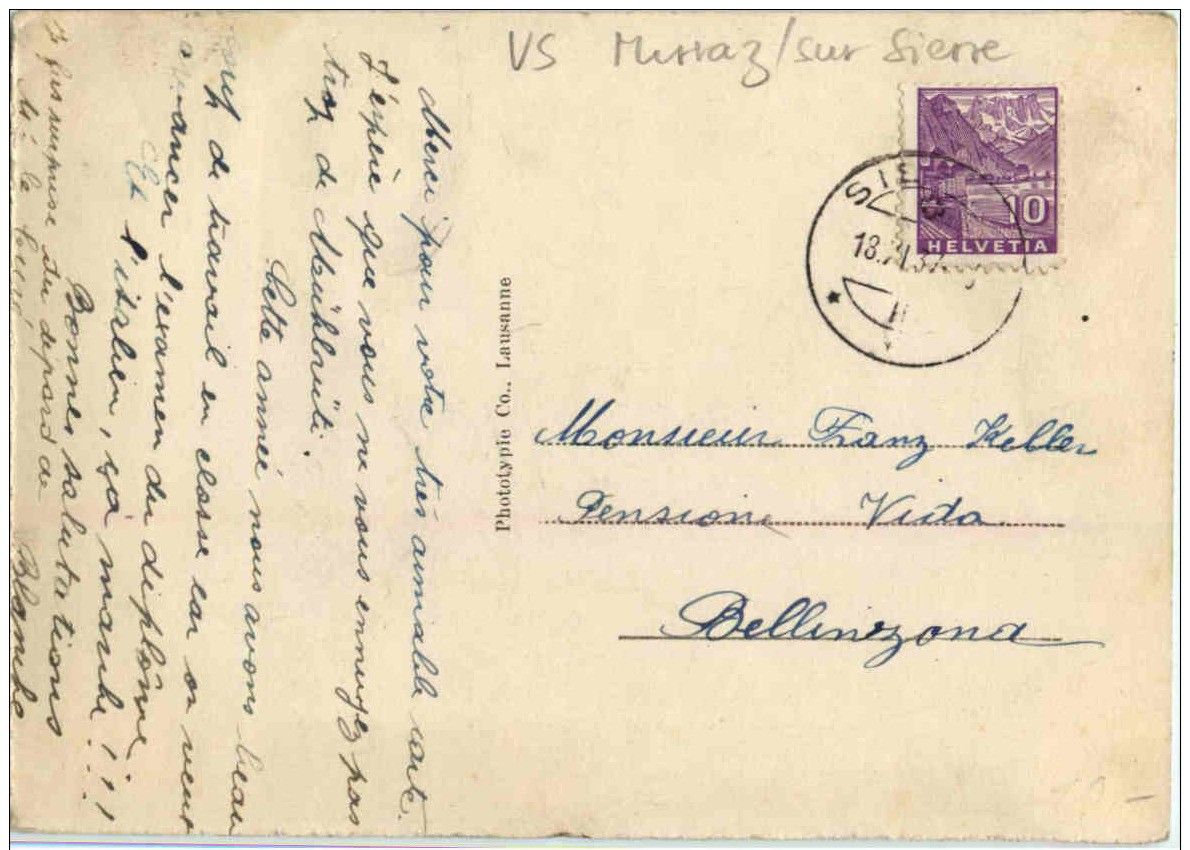 VS Murraz/sur Sierre
10
HELVETIA
SIERRE
18.
Phototypie Co., Lausanne
Monsieur Franz Keller
Pensione Vida
Bellinzona
Merci pour votre très aimable carte.
J'espère que vous ne vous ennuyez pas
trop de Mühlrüti.
Cette année nous avons beau
coup de travail en classe car on veut
avancer l'examen du diplôme.
Et l'italien, ça marche!!!
Bonnes salutations
Blanche
Je fus surprise du départ de